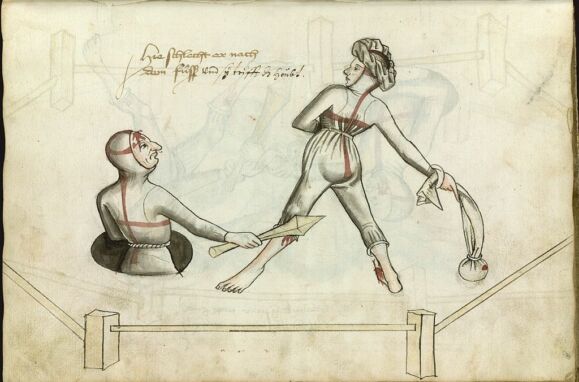 Hie schlecht er nach
dem fůsß und sÿ trifft das houbt.